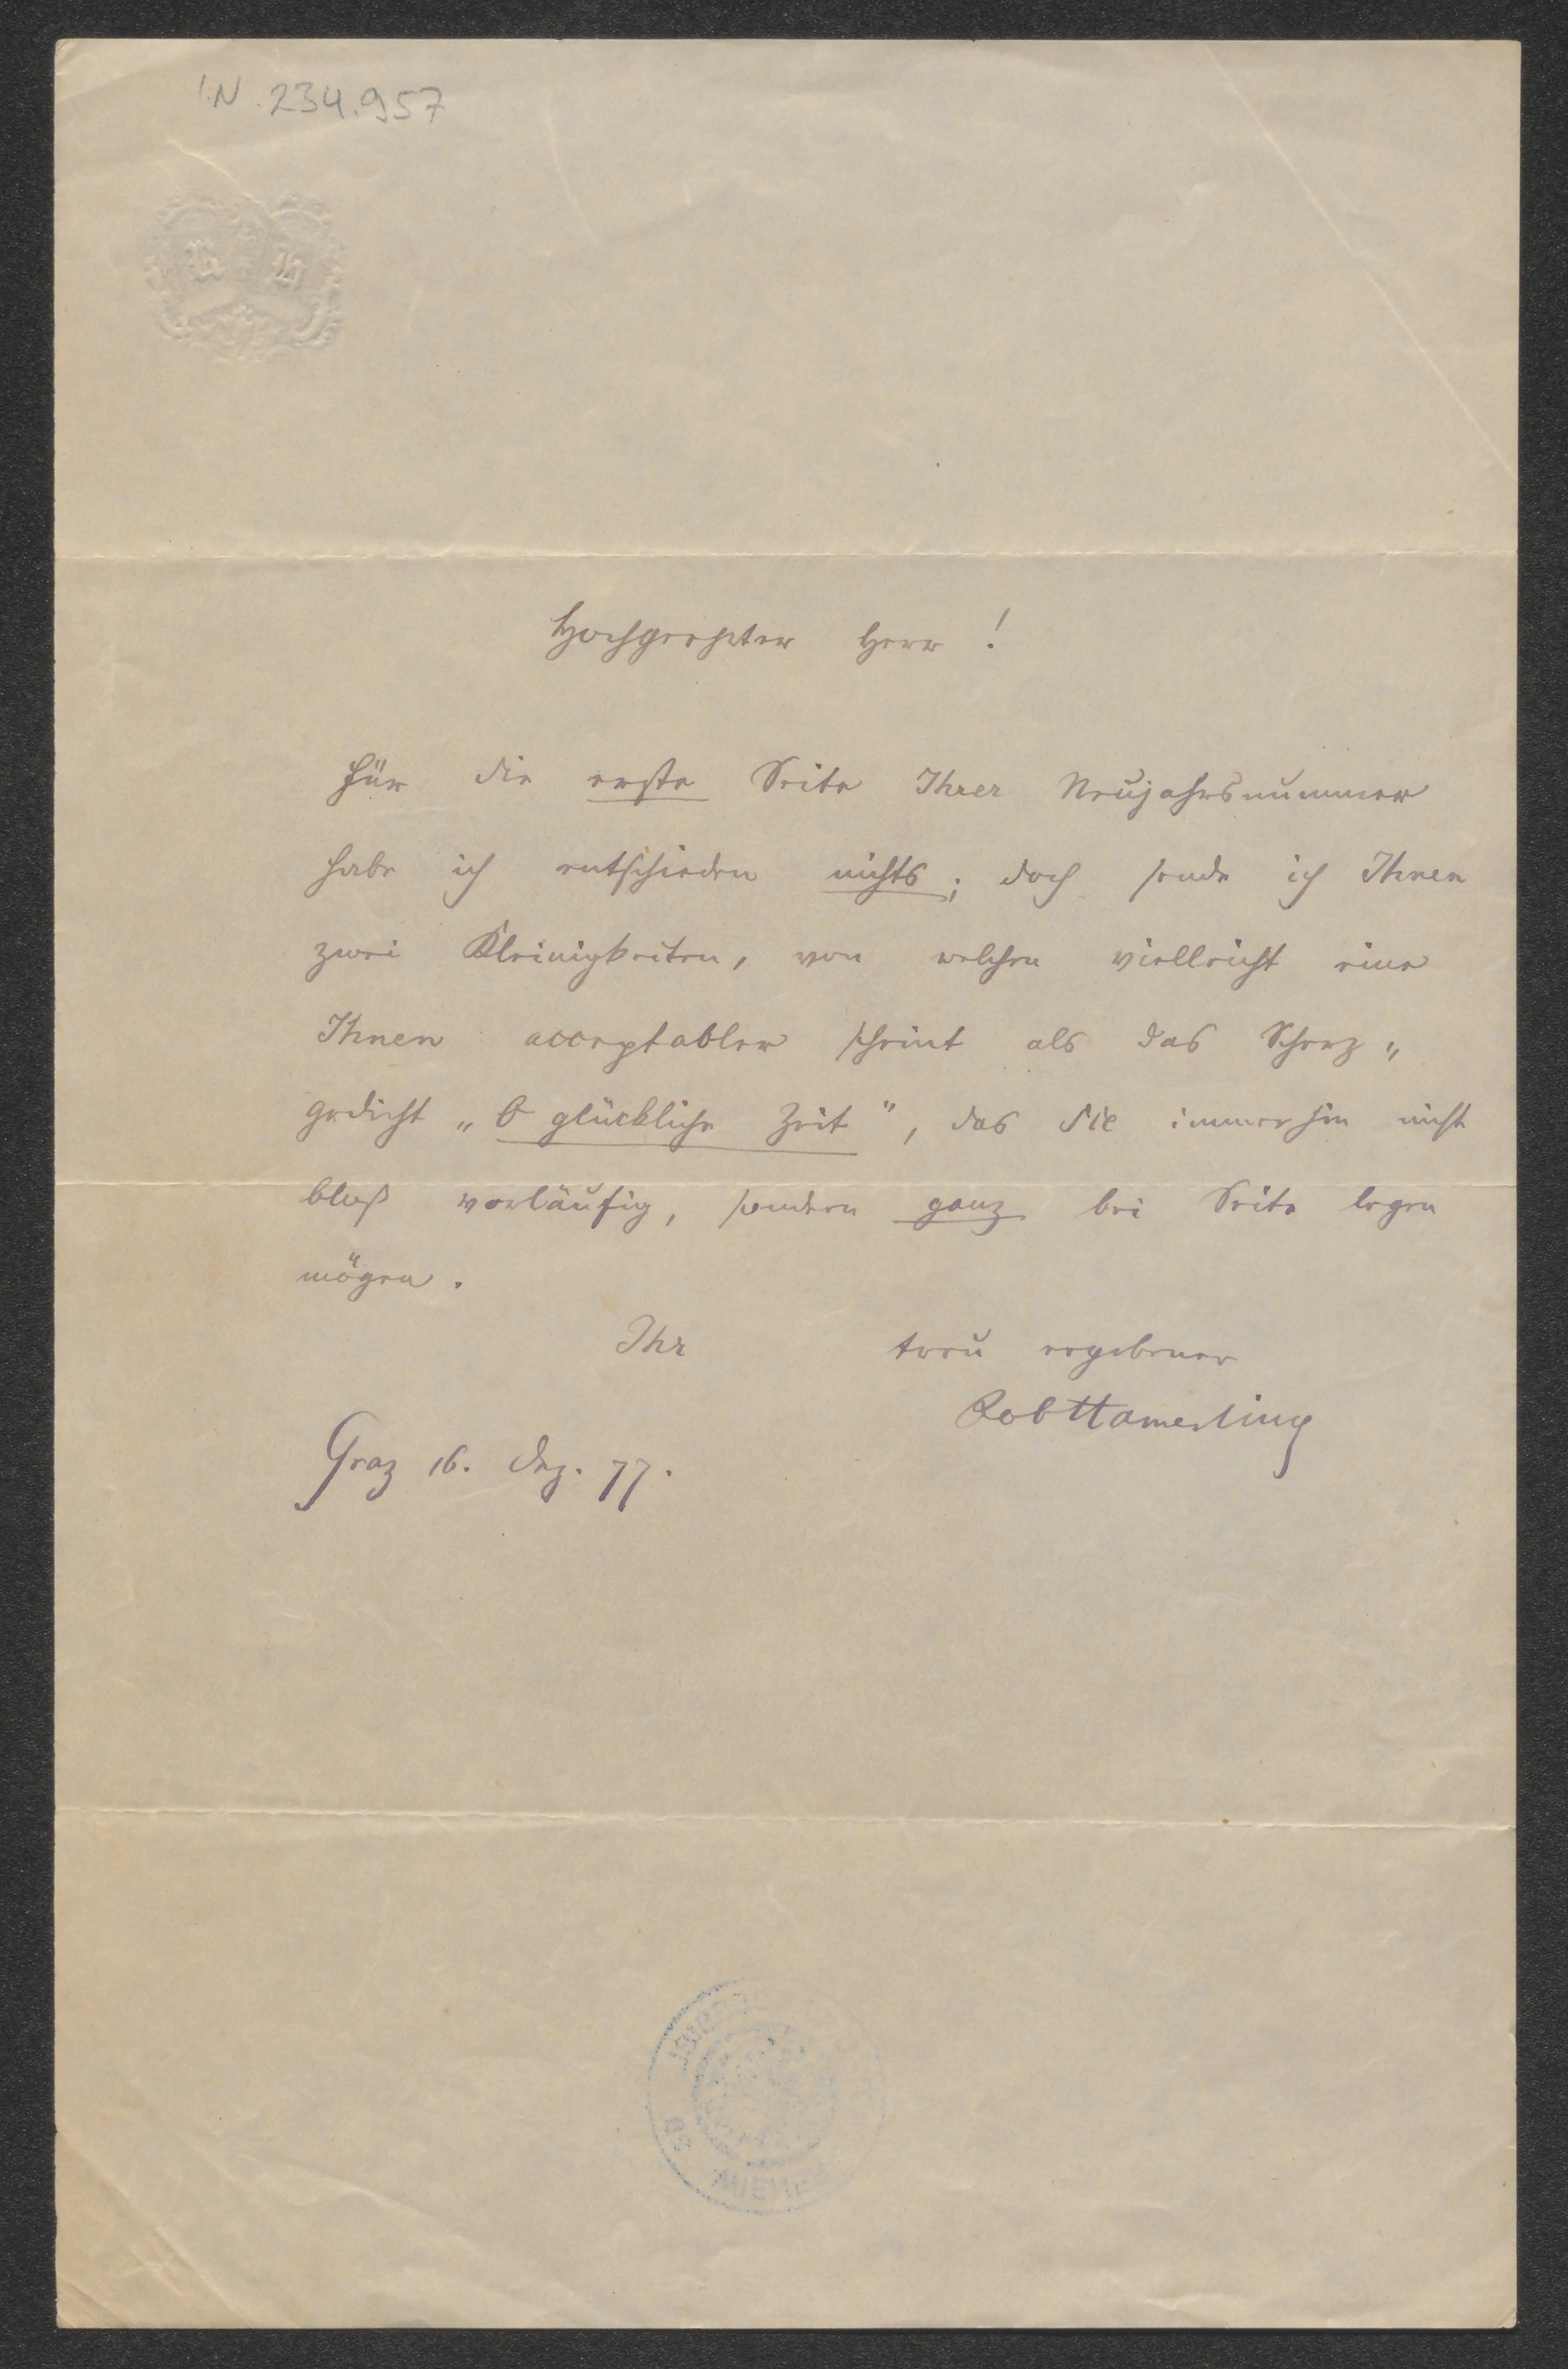 I.N. 234.957
Hochgeehrter Herr!
Für die erste Seite Ihrer Neujahrsnummer
habe ich entschieden nichts; doch sende ich Ihnen
zwei Kleinigkeiten, von welchen vielleicht eine
Ihnen acceptabler scheint als das Scherz„
gedicht „O glückliche Zeit", das Sie immerhin nicht
bloß vorläufig, sondern ganz bei Seite legen
mögen.
Ihr treu ergebener
RobHamerling
Graz 16. Dez. 77.
WIEN